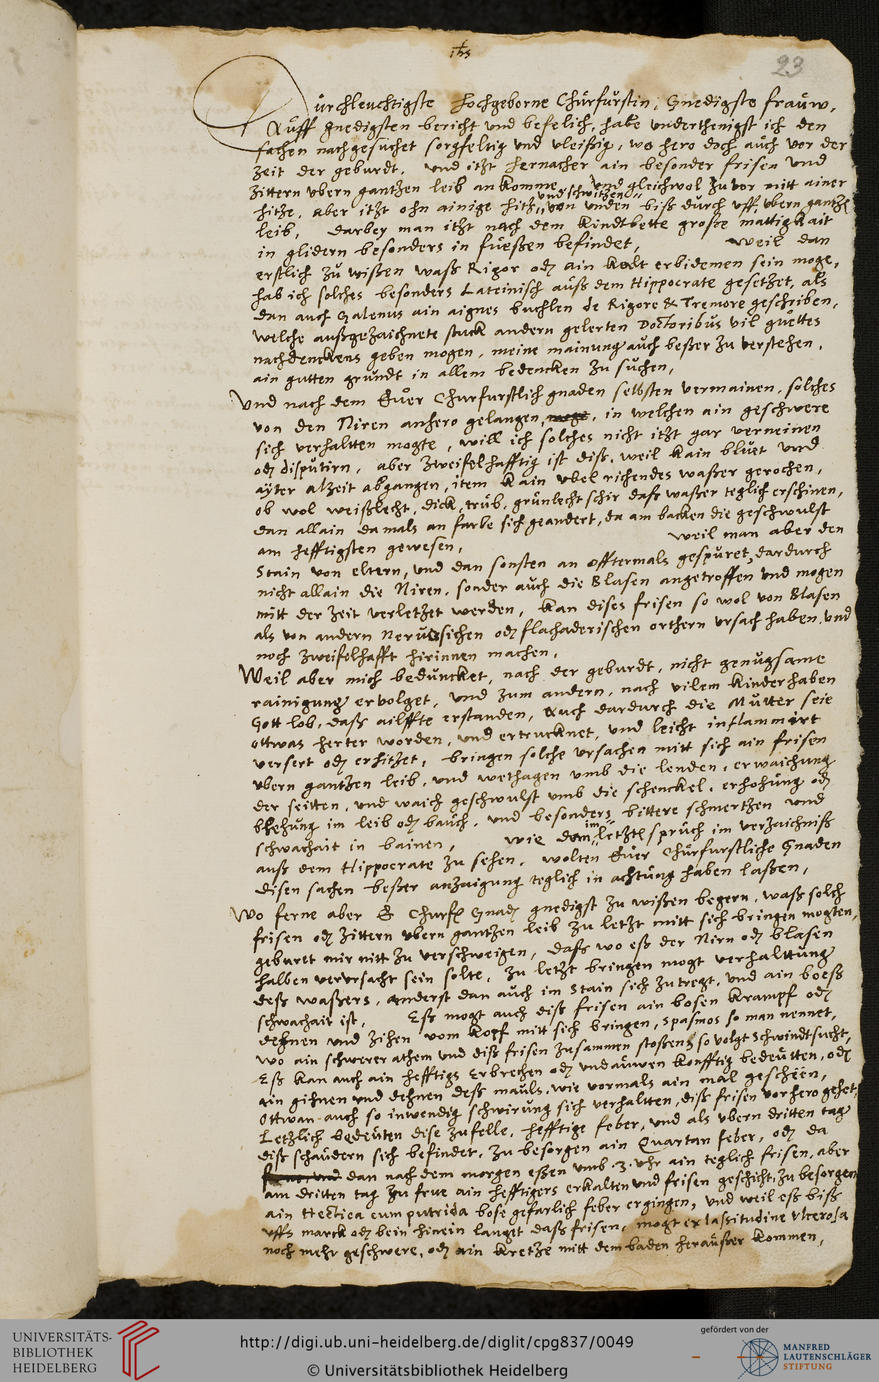 ihs
23
Durchleuchtigste Hochgeborne Churfurstin, Gnedigste fraŭw,
Auff gnedigsten bericht vnd befelich, habe vnderthenigst ich den
sachen nachgesuchet sorgfeltig vnd vleißig, wo hero doch auch vor der
zeit der geburdt, vnd itzt hernacher ain besonder frisen vnd
zittern vbern gantzen leib ankomme, vnd gleichwol zuvor mitt ainer
hitze, aber itzt ohn ainige hitz vnd schwitzen von vnden biß durch uff, vbern gantzen
leib, darbey man itzt nach dem kindtbette große mattigkait
in glidern besonders in fueßen befindet, weil dan
erstlich zu wißen waß Rigor od ain kalt erbidemen sein moge,
hab ich solches besonders Lateinisch auß dem Hippocrate gesetzet, als
dan auch Galenus ain aignes buchlen de Rigore & Tremore geschriben,
welche außgezaichnete stuck andern gelerten Doctoribus vil guettes
nachdenckens geben mogen, meine mainung auch beßer zu verstehen,
ain gutten grundt in allem bedencken zu suchen,
Vnd nach dem Euer Churfurstlich gnaden selbsten vermainen, solches
von den Niren anhero gelangen, in welchen ain geschwere
sich verhaltten mogte, will ich solches nicht itzt gar verneinen
od disputirn, aber zweifelhafftig ist diß, weil kain bluet vnd
ayter alzeit abgangen, item kain vbel richendes waßer gerochen,
ob wol weißlecht, dick, trub, grunlecht schir daß waßer teglich erschinen,
dan allain damals an farbe sich geandert, da am backen die geschwulst
am hefftigsten gewesen, weil man aber den
Stain von eltern, vnd dan sonsten an offtermals gespuret, dardurch
nicht allain die Niren, sonder auch die Blasen angetroffen vnd mogen
mitt der zeit verletzet werden, kan dises frisen so wol von Blasen
als von andern Nerussichen od flachaderischen orthern vrsach haben, vnd
noch zweifelhafft hirinnen machen,
Weil aber mich beduncket, nach der geburdt, nicht genugsame
rainigung ervolget, vnd zum andern, nach vilem kinderhaben
Gott lob, daß ailffte erstanden, Auch dardurch die Mutter seie
ettwas herter worden, vnd ertrucknet, vnd leicht inflammirt
versert od erhitzet, bringen solche vrsachen mitt sich ain frisen
vbern gantzen leib, vnd wethagen vmb die lenden, erwaichung
der seitten, vnd waich geschwulst vmb die schenckel, erhohung od
blehung im leib od bauch, vnd besonders bittere schmertzen vnd
schwachait in bainen, wie dan im letzten spruch im verzaichniß
auß dem Hippocrate zu sehen, wolten Euer Churfurstliche Gnaden
disen sachen beßer anzaigung teglich in achtung haben laßen,
Wo ferne aber E Churf Gnad gnedigst zu wißen begern, waß solch
frisen od zittern vbern gantzen leib zu letzt mitt sich bringen mogten,
geburet mir nitt zu verschweigen, daß wo eß der Nirn od blasen
halben verursacht sein solte, zu letzt bringen mogt verhalttung
deß waßers, anderst dan auch im Stain sich zutregt, vnd ain boeß
schwachait ist, Eß mogt auch diß frisen ain bosen krampf od
dehnen vnd zihen vom kopf mitt sich bringen, Spasmos so man nennet,
wo ain schwerer athem vnd diß frisen zusammen stoßen, so volgt Schwindtsucht,
Eß kan auch ain hefftigs Erbrechen od vndauwen konfftig bedeutten, od
ain gihnen vnd dehnen deß mauls, wie vormals ain mal gescheen,
Ettwan auch so inwendig schwirung sich verhaltten, diß frisen vorhero gehet,
Letzlich bedeuten dise zufelle, hefftige feber, vnd als vbern dritten tag
diß schaudern sich befindet, zu besorgen ain Quartan feber, od da
dan nach dem morgen eßen vmb 3 vhr ain teglich frisen, aber
am dritten tag zu frue ain hefftigers erkalten vnd frisen geschicht, zu besorgen
ain Hectica cum putrida bose gefarlich feber ergingen, vnd weil eß biß
uffs marck od bein hinein langet daß frisen, mogt ex lassitudine vlcerosa
noch mehr geschwere, od ain kretze mitt dem baden heraußer kommen,
UNIVERSITÄTS-
BIBLIOTHEK
HEIDELBERG
http://digi.ub.uni-heidelberg.de/diglit/cpg837/0049
© Universitätsbibliothek Heidelberg
gefördert von der
MANFRED
LAUTENSCHLÄGER
STIFTUNG